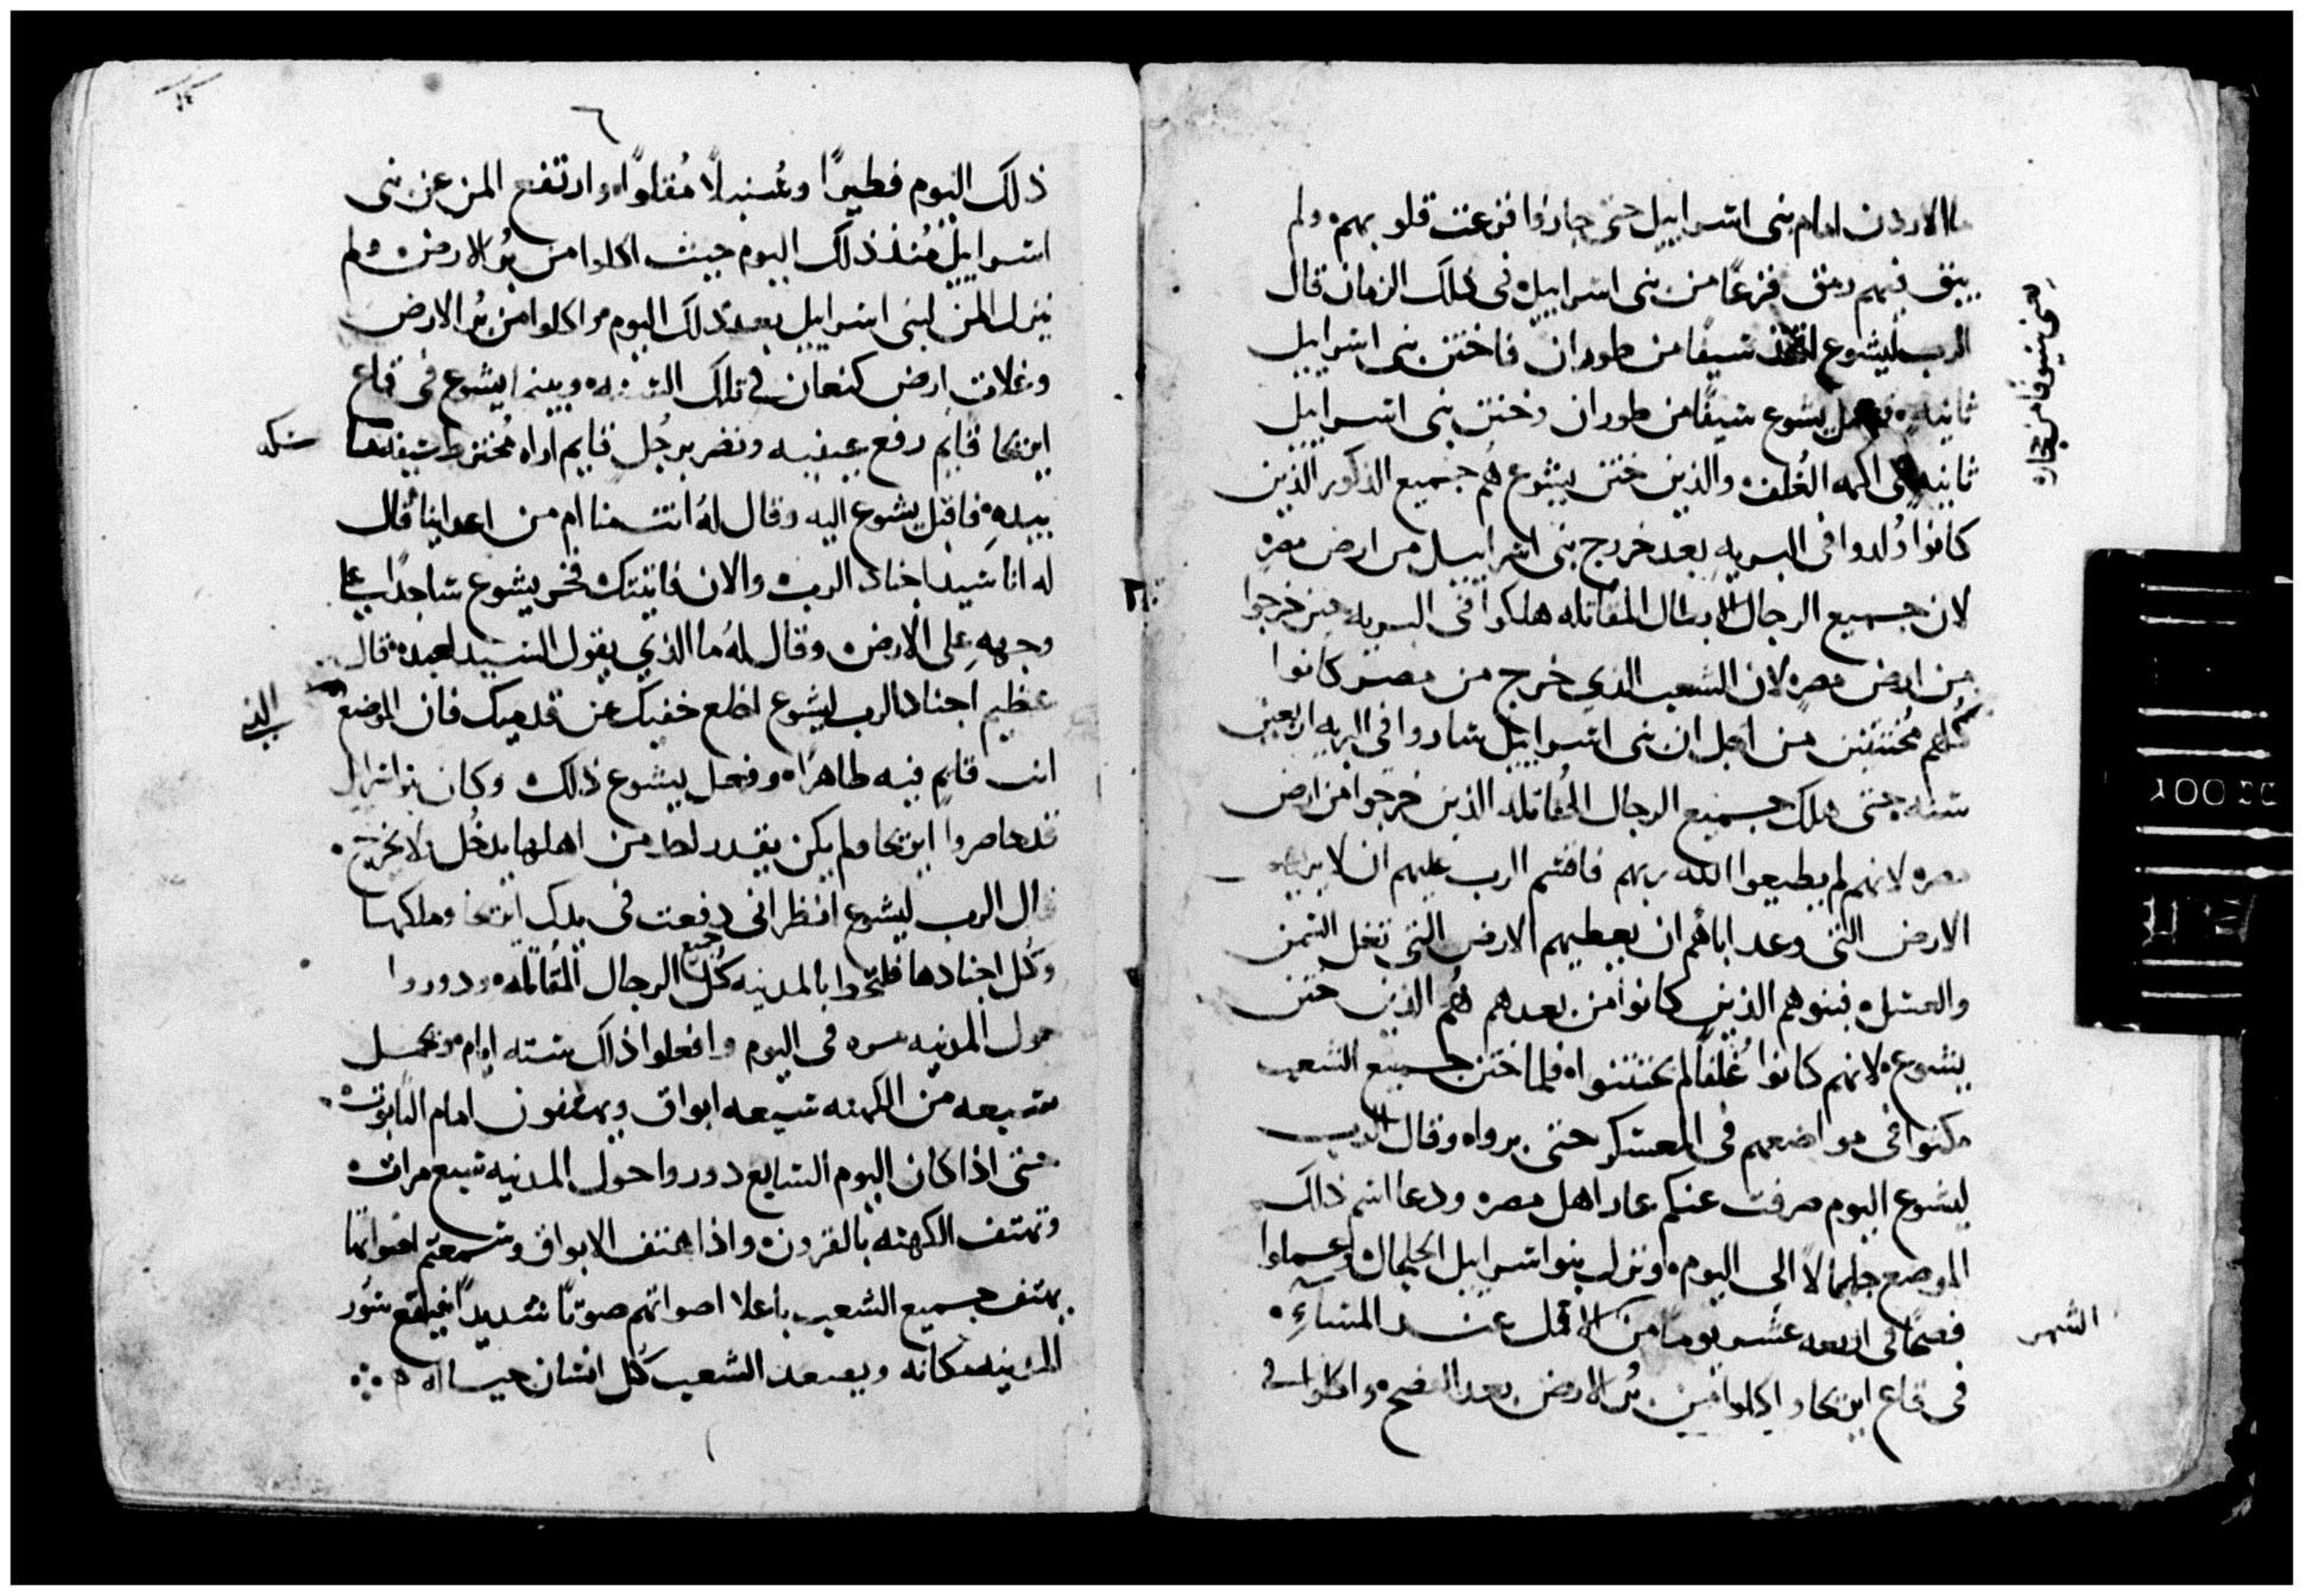 ما الاردن امام بنى اسراييل حتى جازوا فزعت قلوبهم ولم
يبق فيهم رمق فزعًا من بنى اسراييل فى ذلك الزمان قال
الرب ليشوع اتخذ سيفا من طوران فاختن بنى اسراييل
ثانيه يشوع سيفًا من طوران وختن بنى اسراييل
ثانيه فى اكمه الغُلف والذين ختن يشوع هُم جميع الذكور الذين
كانوا وُلدوا فى البريه بعد خروج بنى اسراييل من ارض مصر
لان جميع الرجال الابطال المقاتله هلكوا فى البريه حين خرجوا
من ارض مصر لان الشعب الذي خرج من مصر كانوا
كُلهم مُختتنين من اجل ان بنى اسراييل ساروا فى البريه اربعين
سنه حتى هلك جميع الرجال المُقاتله الذين خرجوا من ارض
مصر لانهم لم يطيعوا الله ربهم فاقسم الرب عليهم ان لا يريهم
الارض التى وعد اباهُم ان يعطيهم الارض التى تغل السمن
والعسل فبنوهم الذين كانوا من بعدهم هُم الذين ختن
يشوع لانهم كانوا غُلفًا لم يختتنوا فلما ختن جميع الشعب
مكثوا فى مواضعهم فى المعسكر حتى بروا وقال الرب
ليشوع اليوم صرفت عنكم عار اهل مصر ودعا اسم ذلك
الموضع جلجالا الى اليوم ونزل بنوا اسراييل الجلجال وعملوا
فصحًا فى اربعه عشر يومًا من الاول عند المساءِ
الشهر
فى قاع اريحا واكلوا من بُر الارض بعد الفصح واكلوا فى
يعنى سيوفا من حجاره
٦
ذلك اليوم فطيرًا وسُنبلًا مُقلوًا وارتفع المن عن بنى
اسراييل مُنذ ذلك اليوم حيث اكلوا من بُر الارض ولم
ينزل المن لبنى اسراييل بعد ذلك اليوم واكلوا من بُر الارض
وغلات ارض كنعان فى تلك السنه وبينما يشوع فى قاع
اريحا قايم رفع عينيه ونضر برجُل قايم اراه مُخترط سيفه
بيدهِ فاقبل يشوع اليه وقال لهُ انت منا ام من اعداينا قال
له انا سيد اجناد الرب والان فاتيتك فخر يشوع ساجدًا على
وجههِ على الارض وقال لهُ ما الذي يقول السيد لعبده قال
عظيم اجناد الرب ليشوع اخلع خفيك عن قدميك فان الموضع
الذي
انت قايم فيه طاهرًا وفعل يشوع ذلك وكان بنو اسراييل
قد حاصروا اريحا ولم يكن يقدر احد من اهلها يدخُل ولا يخرج
قال الرب ليشوع انظر انى دفعت فى يدك اريحا وملكها
وكُل اجنادها فلتحط بالمدينه كُل جميع الرجال المُقاتله ودوروا
حول المدينه مره فى اليوم وافعلوا ذلك سته ايام وتحمل
سبعه من الكهنه سبعه ابواق ويهتفون امام التابوت
حتى اذا كان اليوم السابع دوروا حول المدينه سبع مرات
وتهتف الكهنه بالقرون واذا هتف الابواق وسمعتم اصواتها
يهتف جميع الشعب باعلا اصواتهم صوتًا شديدًا فيقع سُور
المدينه مكانه ويصعد الشعب كُل انسان